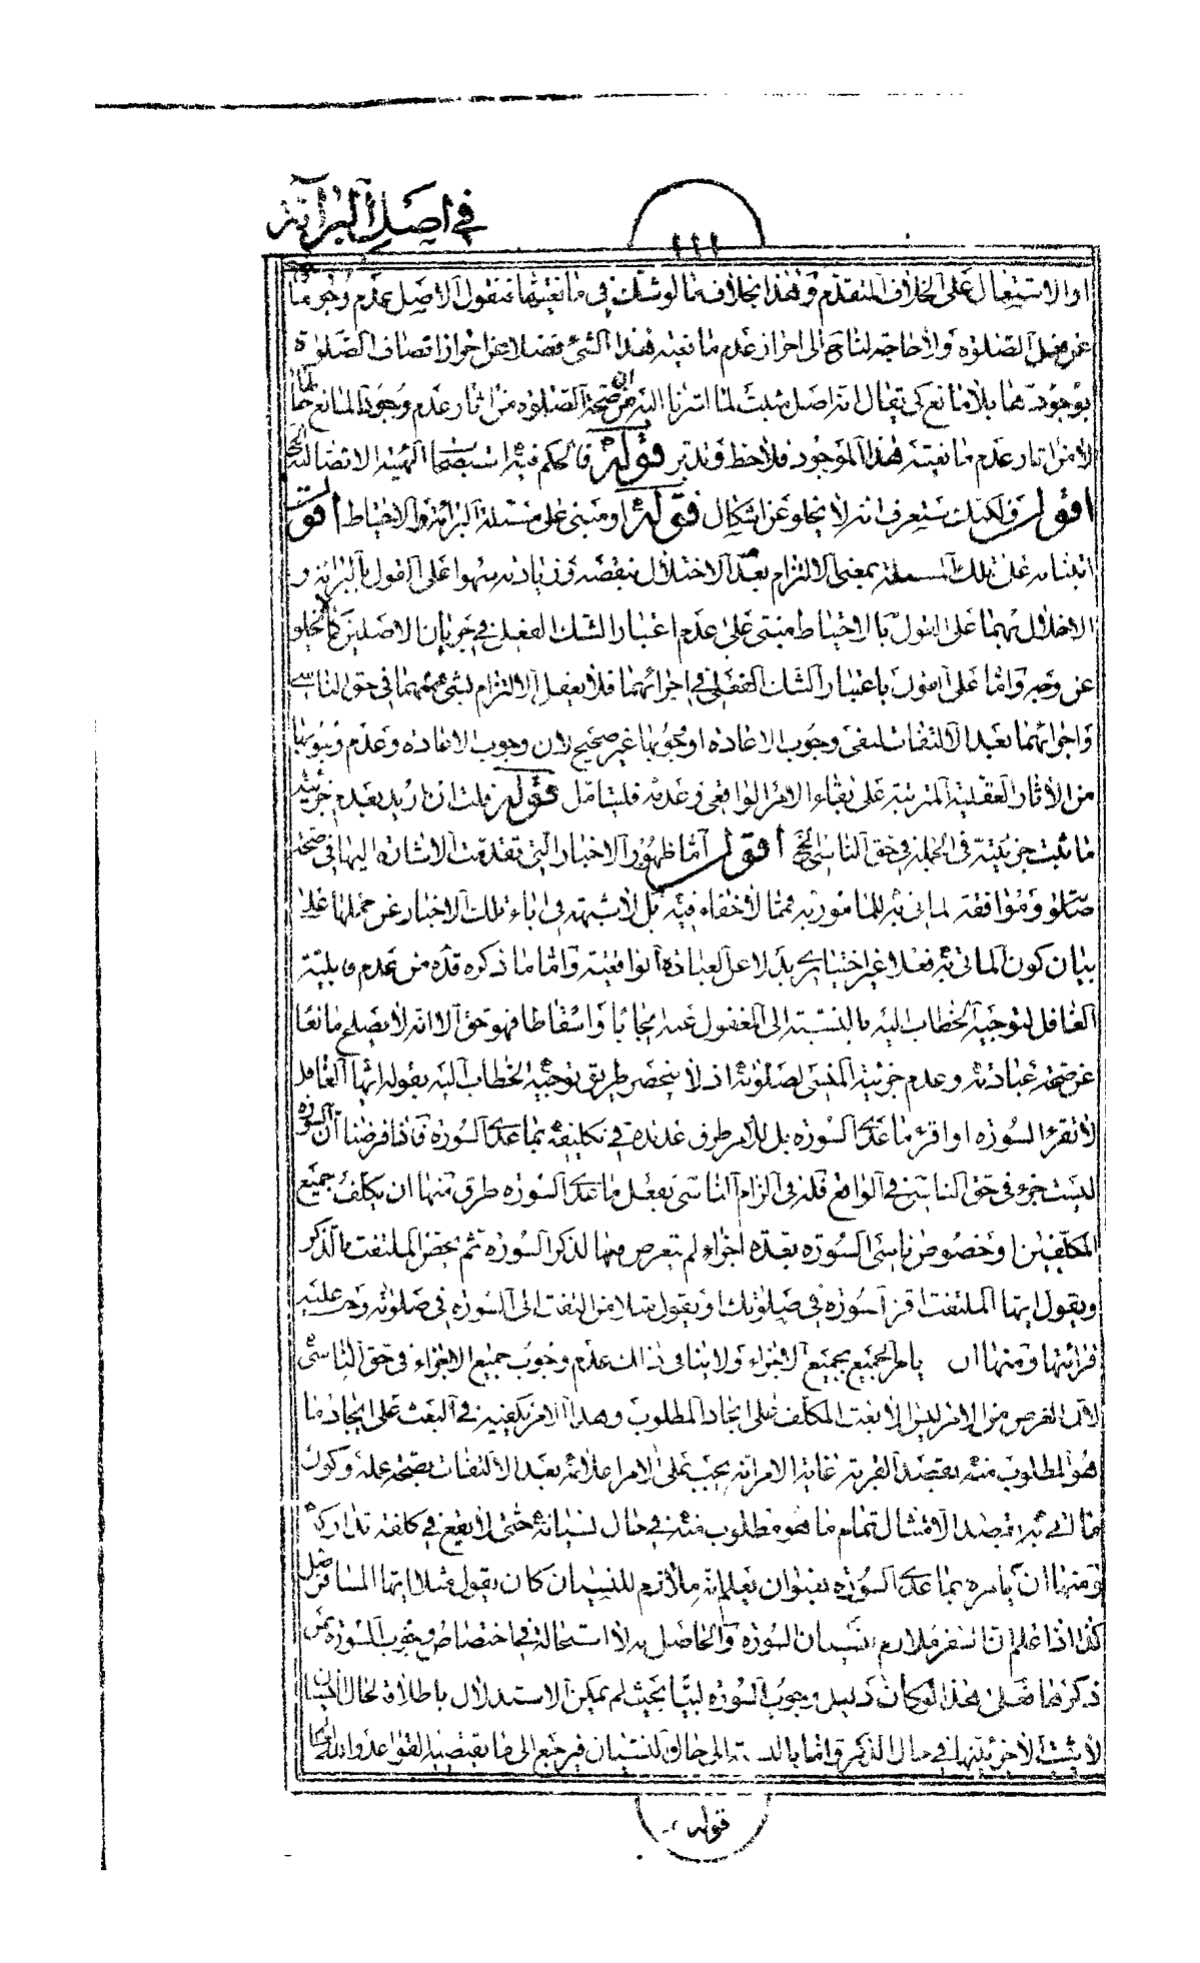 في اصل البرائة
١١١
او الاشتغال على الخلاف المتقدم وهذا بخلاف ما لو شك في مانعيتها فنقول الاصل عدم وجودها
عن محل الصلوة ولا حاجة لنا الى احراز عدم مانعية هذا الشئ فضلا عن احراز اتصاف الصلوة
بوجودها بلا مانع كي يقال انه اصل مثبت لما اشرنا اليه من ان صحة الصلوة من اثار عدم وجود المانع
لا من اثار عدم مانعية هذا الموجود فلاحظ وتدبر قوله فالحكم فيه استصحاب الهيئة الاتصالية الخ
اقول ولكنك ستعرف انه لا يخلو عن اشكال قوله او مبنى على مسئلة البرائة والاحتياط اقول
ابتنائه على تلك المسئلة بمعنى الالتزام بعدم الاختلال بنقصه وزيادته سهوا على القول بالبرائة و
الاخلال بهما على القول بالاحتياط مبنى على عدم اعتبار الشك الفعلي في جريان الاصلين كما لا يخلو
عن وجه واما على القول باعتبار الشك الفعلي في اجرائهما فلا يعقل الالتزام بشئ منهما في حق الناسي
واجرائهما بعد الالتفات لنفى وجوب الاعادة او وجوبها غير صحيح لان وجوب الاعادة وعدم وجوبها
من الاثار العقلية المترتبة على بقاء الامر الواقعي وعدمه فليتامل قوله قلت ان اريد بعدم جزئية
ما ثبت جزئيته في الجملة في حق الناسي الخ اقول اما ظهور الاخبار التي تقدمت الاشارة اليها في صحة
صلوته وموافقته لما اتى به للمامور به فمما لا خفاء فيه بل لا شبهة في اباء تلك الاخبار عن حملها على
بيان كون الماتي به فعلا غير اختياري بدلا عن العبادة الواقعية واما ما ذكره قده من عدم قابلية
الغافل لتوجيه الخطاب اليه بالنسبة الى المغفول عنه ايجابا واسقاطا فهو حق الا انه لا يصلح مانعا
عن صحة عبادته وعدم جزئية المنسي لصلوته اذ لا ينحصر طريق توجيه الخطاب اليه بقوله ايها الغافل
لا تقرء السورة او اقرء ما عدى السورة بل للامر طرق عديدة في تكليفه بما عدى السورة فاذا فرضنا ان السورة
ليست جزء في حق الناسي في الواقع فله في الزام الناسي بفعل ما عدى السورة طرق منها ان يكلف جميع
المكلفين او خصوص ناسي السورة بعدة اجزاء لم يتعرض فيها لذكر السورة ثم يخص الملتفت بالذكر
ويقول ايها الملتفت اقرء سورة في صلوتك او يقول مثلا من التفت الى السورة في صلوته وجب عليه
قرائتها ومنها ان يامر الجميع بجميع الاجزاء ولا ينافى ذلك عدم وجوب جميع الاجزاء في حق الناسي
لان الغرض من الامر ليس الا بعث المكلف على ايجاد المطلوب وهذا الامر يكفيه في البعث على ايجاد ما
هو المطلوب منه بقصد القربة غاية الامر انه يجب على الامر اعلامه بعد الالتفات بصحة عمله وكون
ما اتى به بقصد الامتثال تمام ما هو مطلوب منه في حال نسيانه حتى لا يقع في كلفة تداركه
ومنها ان يامره بما عدى السورة بعنوان يعلم انه ملازم للنسيان كان يقول مثلا ايها المسافر صل
كذا اذا علم ان السفر ملازم لنسيان السورة والحاصل انه لا استحالة في اختصاص وجوب السورة بمن
ذكرها فعلى هذا لو كان دليل وجوب السورة لبيا بحيث لم يمكن الاستدلال باطلاقه لحال النسيان
لا يثبت الا جزئيتها في حال الذكر واما بالنسبة الى حال النسيان فيرجع الى ما يقتضيه القواعد والله العالم
قوله